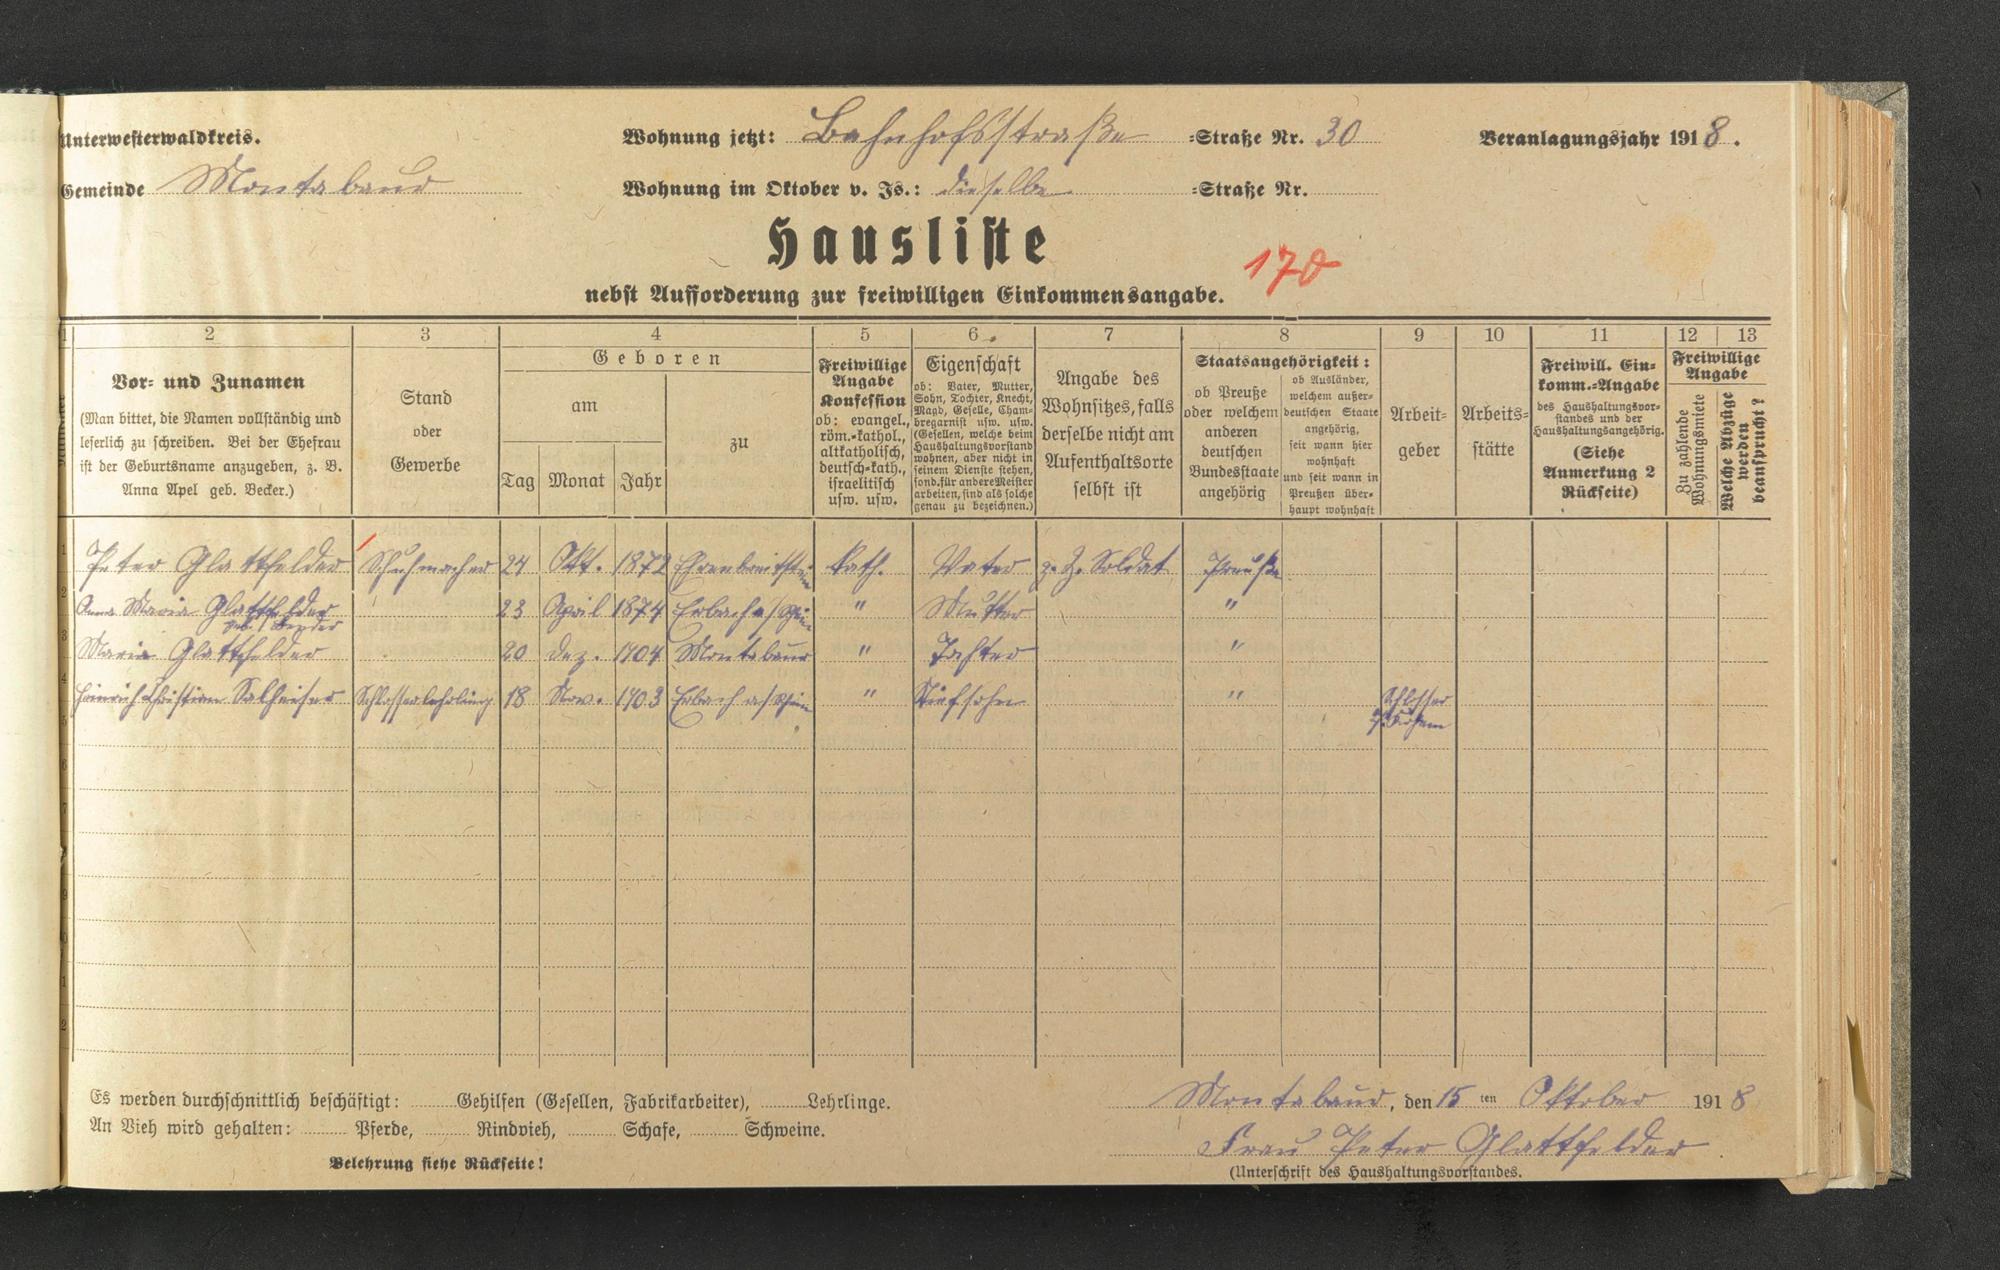 Unterwesterwaldkreis.
Wohnung jetzt: Bahnhofsstraße -Straße Nr. 30
Veranlagungsjahr 1918.
Gemeinde Montabaur
Wohnung im Oktober v. Js.: dieselbe -Straße Nr.
Hausliste
170
nebst Aufforderung zur freiwilligen Einkommensangabe.
1 2 3 4 5 6. 7 8 9 10 11 12 13
Vor- und Zunamen
(Man bittet, die Namen vollständig und
leserlich zu schreiben. Bei der Ehefrau
ist der Geburtsname anzugeben, z. B.
Anna Apel geb. Becker.)
Stand
oder
Gewerbe
Geboren
am
Tag Monat Jahr
zu
Freiwillige
Angabe
Konfession
ob: evangel.,
röm.-kathol.,
altkatholisch,
deutsch-kath.,
israelitisch
usw. usw.
Eigenschaft
ob: Vater, Mutter,
Sohn, Tochter, Knecht,
Magd, Geselle, Cham-
bregarnist usw. usw.
(Gesellen, welche beim
Haushaltungsvorstand
wohnen, aber nicht in
seinem Dienste stehen,
sond. für andere Meister
arbeiten, sind als solche
genau zu bezeichnen.)
Angabe des
Wohnsitzes, falls
derselbe nicht am
Aufenthaltsorte
selbst ist
Staatsangehörigkeit:
ob Preuße
oder welchem
anderen
deutschen
Bundesstaate
angehörig
ob Ausländer,
welchem außer-
deutschen Staate
angehörig,
seit wann hier
wohnhaft
und seit wann in
Preußen über-
haupt wohnhaft
Arbeit-
geber
Arbeits-
stätte
Freiwill. Ein-
komm.-Angabe
des Haushaltungsvor-
standes und der
Haushaltungsangehörig.
(Siehe
Anmerkung 2
Rückseite)
Freiwillige
Angabe
Zu zahlende
Wohnungsmiete
Welche Abzüge
werden
beansprucht?
1 Peter Glattfelder Schuhmacher 24 Okt. 1872 Ehrenbreitstein kath. Vater z. Z. Soldat Preuße
2 Anna Maria Glattfelder 23 April 1874 Erbach a/Rhein " Mutter "
geb. Bender
3 Maria Glattfelder 20 Dez. 1904 Montabaur " Tochter "
4 Heinrich Christian Schlosserlehrling 18 Nov. 1903 Erbach a/Rhein " Stiefsohn " Schlosser
5
6
7
9
Es werden durchschnittlich beschäftigt: Gehilfen (Gesellen, Fabrikarbeiter), Lehrlinge.
An Vieh wird gehalten: Pferde, Rindvieh, Schafe, Schweine.
Belehrung siehe Rückseite!
Montabaur, den 15ten Oktober 1918
Frau Peter Glattfelder
(Unterschrift des Haushaltungsvorstandes.